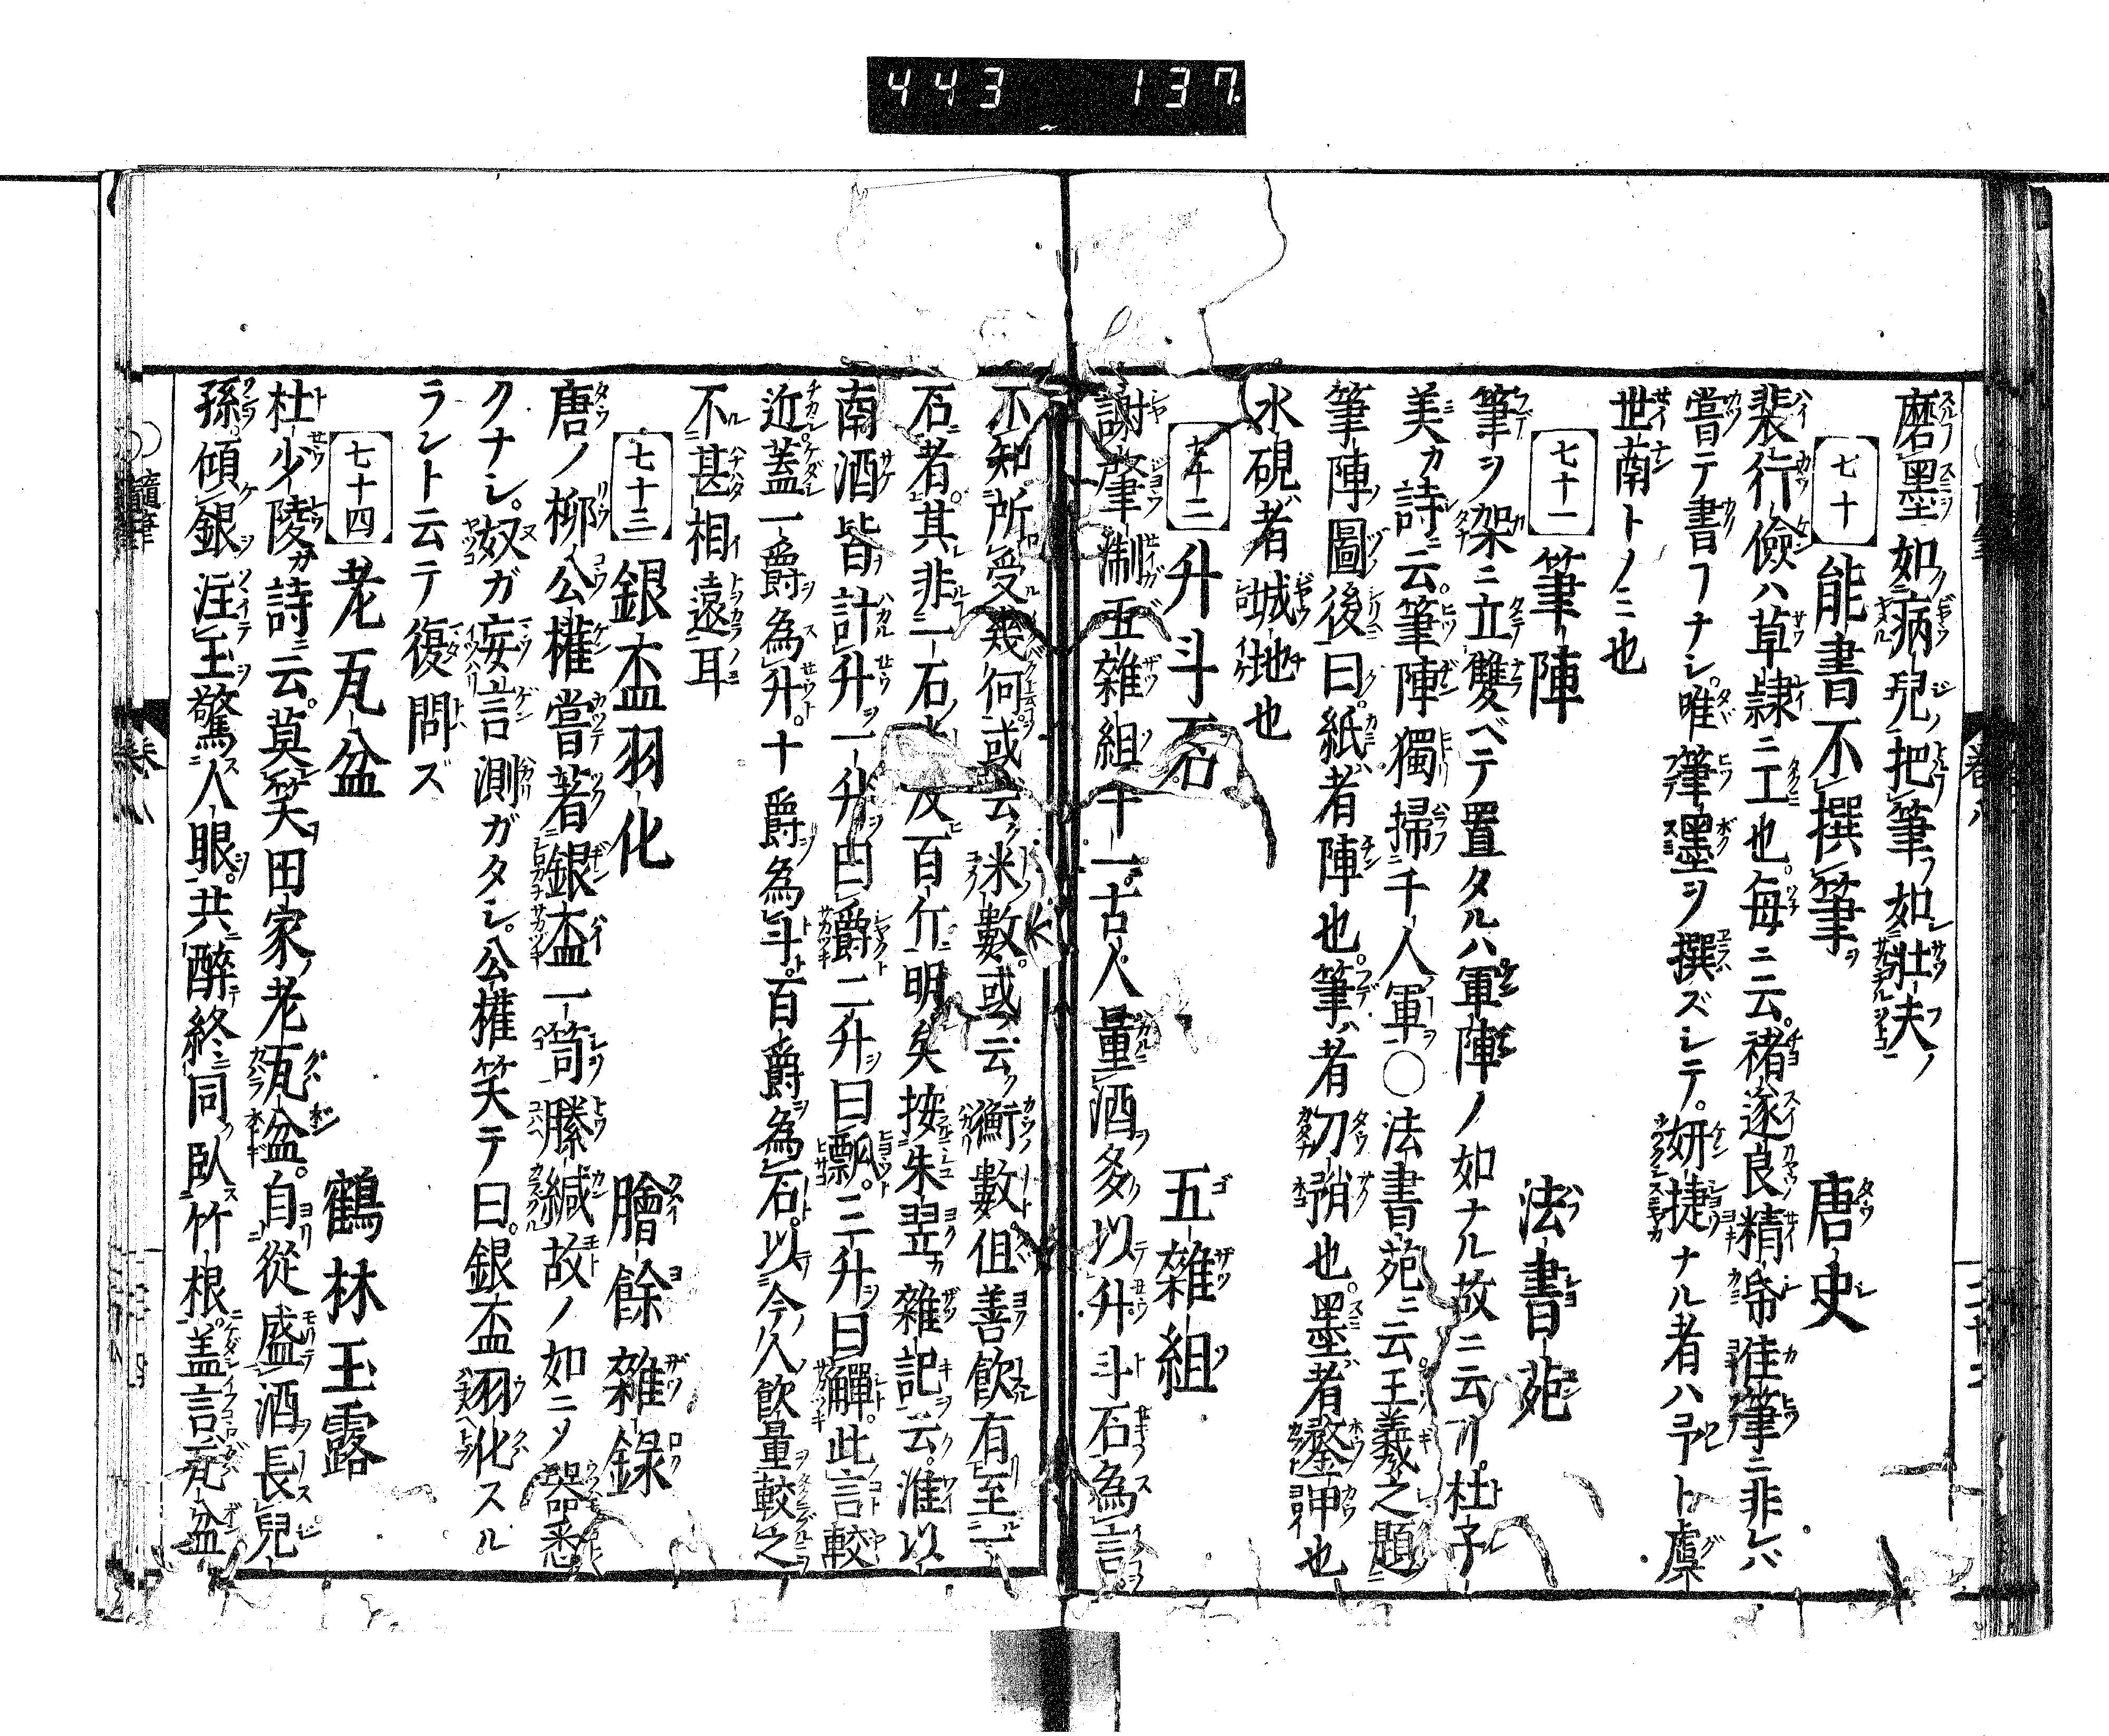 443 137
磨墨如病兒把筆如壯夫
七十 能書不撰筆 唐史
裴行儉ハ草隷ニ工也毎ニ云褚遂良精帋佳筆ニ非レバ
嘗テ書フナシ唯筆墨ヲ撰ズシテ妍捷ナル者ハ予ト虞
世南トノミ也
七十一 筆陣 法書苑
筆ヲ架ニ立雙ベテ置タルハ軍陣ノ如ナル故ニ云フ杜子
美カ詩ニ云筆陣獨掃千人軍○法書苑ニ云王羲之題
筆陣圖後曰紙者陣也筆者刀矟也墨者鍪甲也
水硯者城池也
七十二 升斗石 五雜組
謝肇淛五雜組十一古人量酒多以升斗石為言
不知所受幾何或云米數或云衡數但善飲有至一
石者其非一石米及百斤明矣按朱翌雜記云淮以
南酒皆計升一升曰爵二升曰瓢三升曰觶此言較
近蓋一爵為升十爵為斗百爵為石以今人飲量較之
不甚相遠耳
七十三 銀盃羽化 膾餘雜錄
唐ノ柳公權嘗著銀盃一笥縢緘故ノ如ニメ器悉
クナシ奴ガ妄言測ガタシ公權笑テ曰銀盃羽化スル
ラント云テ復問ズ
七十四 老瓦盆 鶴林玉露
杜少陵カ詩ニ云莫笑田家老瓦盆自從盛酒長兒
孫傾銀注玉驚人眼共醉終同臥竹根盖言瓦盆